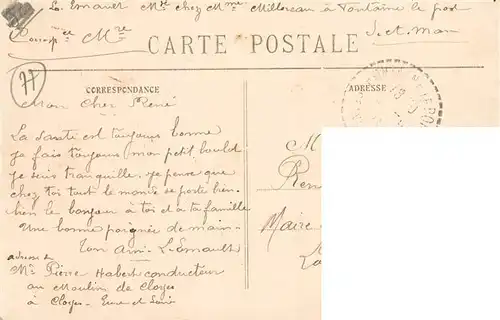 L. Ernault Mr chez Mme Millereau à Fontaine le port
S.et.Marne
CARTE POSTALE
H
CORRESPONDANCE
ADRESSE
Mon Cher René
La santé est toujours bonne
je fais toujours mon petit boulot
je suis tranquille. je pense que
chez toi tout le monde se porte bien.
bien le bonjour à toi et à ta famille
Une bonne poignée de main.
Ton ami. L. Ernault
adresse de
Mr Pierre Habert conducteur
au Moulin de Cloyes
à Cloyes. Eure et Loir
M
Ren
Maire